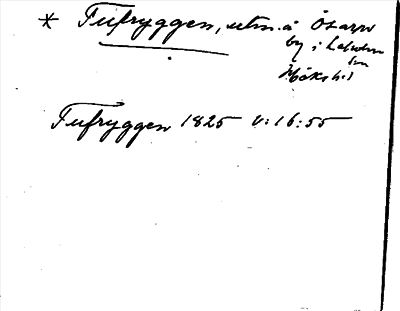 * Tufryggen, utm. å Ösarp
by i Laholms
sn
Höks hd
Tufryggen 1825 v: 16: 55